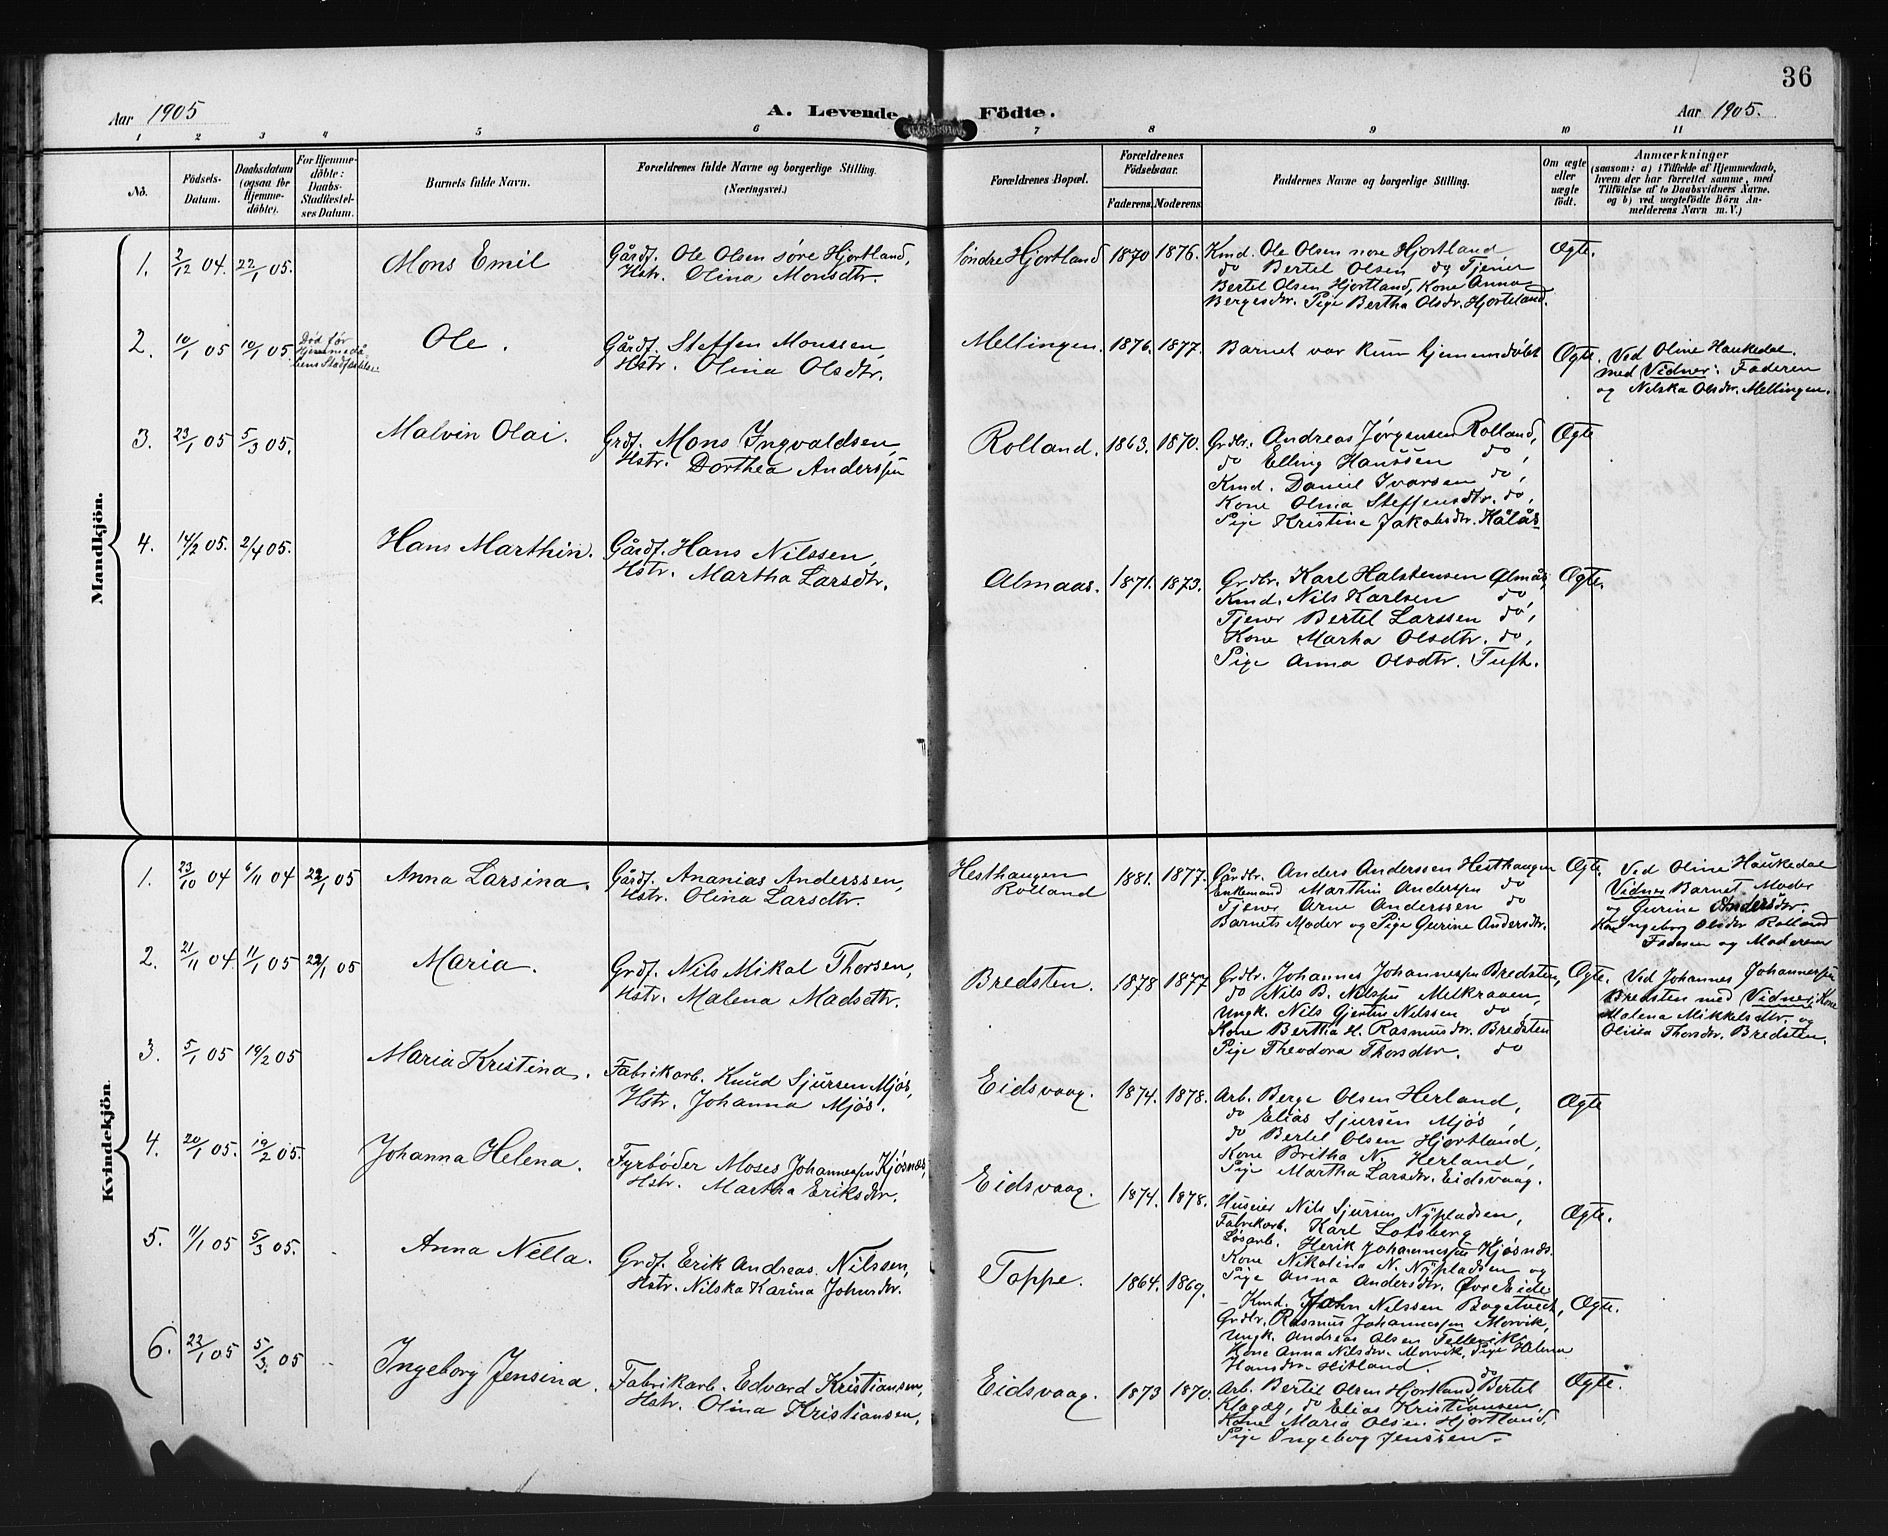 36
Aar 1905
A. Levende Födte.
Aar 1905.
1 2 3 4 5 6 7 8 9 10 11
No.
Födsels-
Datum.
Daabsdatum
(ogsaa for
Hjemme-
döbte).
For Hjemme-
döbte:
Daabs-
Stadfæstel-
ses Datum.
Barnets fulde Navn.
Forældrenes fulde Navne og borgerlige Stilling.
(Næringsvei.)
Forældrenes Bopæl.
Forældrenes
Födselsaar.
Faderens. Moderens.
Faddernes Navne og borgerlige Stilling.
Om ægte
eller
uægte
födt.
Anmærkninger
(saasom: a) i Tilfælde af Hjemmedaab,
hvem der har forrettet samme, med
Tilföielse af to Daabsvidners Navne.
og b) ved uægtefödte Börn An-
melderens Navn m. V.)
Mandkjön.
1. 2/12 04. 22/1 05. Mons Emil
Gårdf. Ole Olsen søre Hjortland,
Hstr. Olina Monsdtr.
Søndre Hjortland 1870 1876.
Kmd. Ole Olsen nore Hjortland,
do Bertel Olsen do, Tjener
Bertel Olsen Hjortland, Kone Anna
Bergesdtr. Pige Bertha Olsdtr. Hjorteland.
Ægte.
2. 10/1 05 10/1 05.
Død før
Hjemmedå-
bens Stadfæstelse
Ole.
Gårdf. Steffen Monssen,
Hstr. Olina Olsdtr.
Mellingen. 1876. 1877.
Barnet var kun hjemmedøbt
Ægte.
Ved Oline Haukedal
med Vidner: Faderen
og Nilska Olsdtr. Mellingen.
3. 23/1 05 5/3 05. Malvin Olai.
Grdf. Mons Ingvaldsen,
Hstr. Dorthea Anderssen
Rolland. 1863. 1870.
Grdbr. Andreas Jørgensen Rolland,
do Elling Hanssen do,
Kmd. Daniel Ivarsen do,
Kone Olina Steffensdtr. do,
Pige Kristine Jakobsdtr. Kålås
Ægte
4. 14/2 05. 2/4 05. Hans Marthin.
Gårdf. Hans Nilssen,
Hstr. Martha Larsdtr.
Almaas. 1871. 1873.
Grdbr. Karl Halstensen Almås,
Kmd. Nils Karlsen do,
Tjener Bertel Larssen do,
Kone Marha Olsdtr. do,
Pige Anna Olsdtr. Tuft.
Ægte.
Kvindekjön.
1. 23/10 04 6/11 04 22/1 05 Anna Larsina.
Gårdf. Ananias Anderssen,
Hstr. Olina Larsdtr.
Hesthaugen
Rolland
1881. 1877.
Gårdbr. Anders Anderssen Hesthaugen
Enkemand Marthin Anderssen do
Tjener Arne Anderssen do
Barnets Moder og Pige Gurine Andersdtr.
Ægte.
Ved Oline Haukedal
Vidner Barnet Moder
og Gurine Andersdtr.
Kone Ingeborg Olsdtr Rolland
Faderen og Moderen
2. 21/11 04. 11/1 05 22/1 05 Maria.
Grdf. Nils Mikal Thorsen,
Hstr. Malena Madsdtr.
Bredsten. 1878 1877
Grdbr. Johannes Johannessen Bredsten,
do Nils B. Nilssen Melkraaen,
Ungk. Nils Gjertin Nilssen do,
Kone Bertha H. Rasmusdtr. Bredsten
Pige Theodora Thorsdtr. do
Ægte.
Ved Johannes Johannessen
Bredsten med Vidner: Kone
Malena Mikkelsdtr. og
Olina Thorsdtr. Bredsten.
3. 5/1 05 19/2 05 Maria Kristina.
Fabrikarb. Knud Sjursen Mjøs,
Hstr. Johanna Mjøs.
Eidsvaag. 1874. 1878.
Arb. Berge Olsen Herland,
do Elias Sjursen Mjøs,
do Bertel Olsen Hjortland,
Kone Britha N. Herland,
Pige Martha Larsdtr. Eidsvaag.
Ægte
4. 20/1 05. 19/2 05. Johanna Helena.
Fyrbøder Moses Johannessen Kjøsnæs,
Hstr. Martha Eriksdtr.
Eidsvaag. 1874. 1878.
Huseier Nils Sjursen Nÿpladsen,
Fabrikarb. Karl Lotsberg
Løsarb. Herik Johannessen Kjøsnæs.
Kone Nikolina N. Nÿpladsen og
Pige Anna Andersdtr. Øvre Eide
Ægte.
5. 11/1 05 5/3 05. Anna Nella.
Grdf. Erik Andreas Nilssen,
Hstr. Nilska Karina Johnsdtr.
Toppe. 1864. 1869.
Kmd. John Nilssen Bogetvedt,
Grdbr. Rasmus Johannessen Morvik,
Ungk. Andreas Olsen Tellevik
Kone Anna Nilsdtr. Morvik, Pige Helena
Hansdtr. Hitland.
Ægte.
6. 22/1 05 5/3. 05 Ingeborg Jensina.
Fabrikarb. Edvard Kristiansen,
Hstr. Olina Kristiansen,
Eidsvaag. 1873 1870.
Arb. Bertel Olsen Hjortland, do Bertel
do Elias Kristiansen,
Kone Maria Olsen Hjortland,
Pige Ingeborg Jenssen.
Ægte.